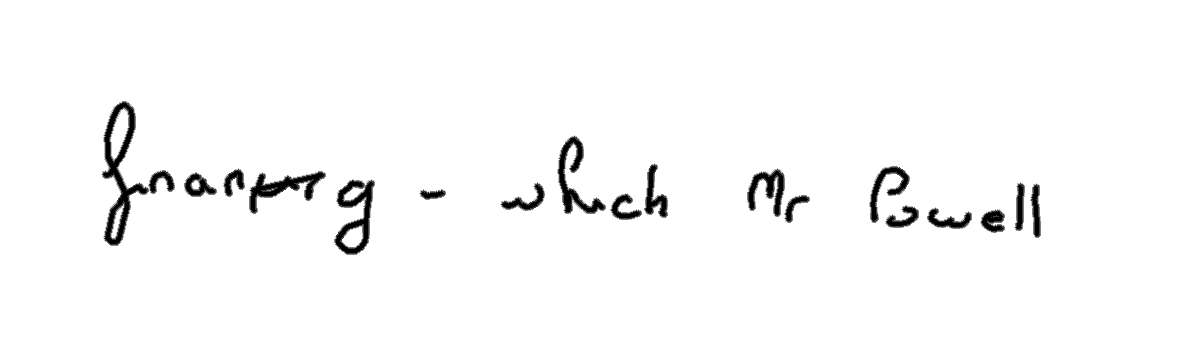 financing - which Mr Powell